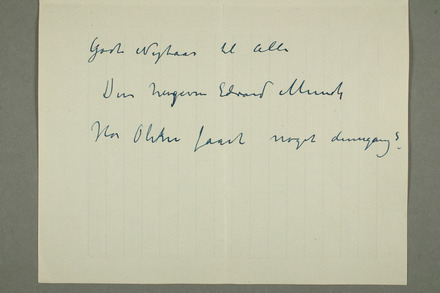 Godt Nytaar til alle
Din hengivne Edvard Munch
Har Olsen faaet noget dennegang?